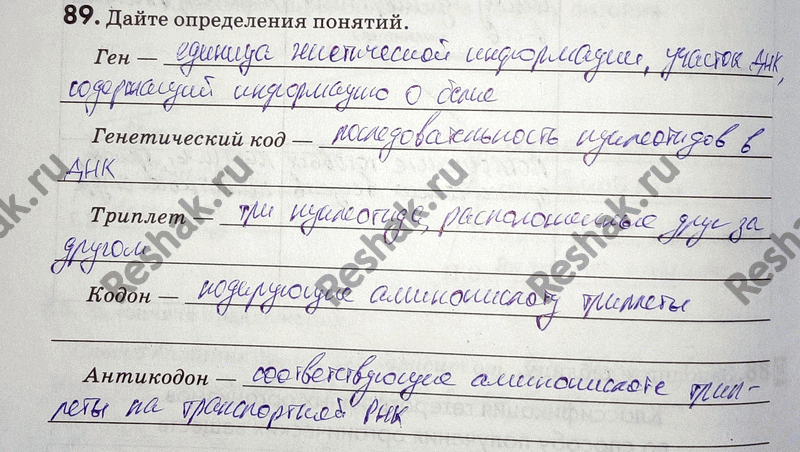 89. Дайте определения понятий.
Ген — единица генетической информации, участок ДНК,
содержащий информацию о белке
Генетический код — последовательность нуклеотидов в
ДНК
Триплет — три нуклеотида, расположенные друг за
другом
Кодон — кодирующие аминокислоту триплеты
Антикодон — соответствующие аминокислоте трип-
леты на транспортной РНК
Reshak.ru
Reshak.ru
Reshak.ru
Reshak.ru